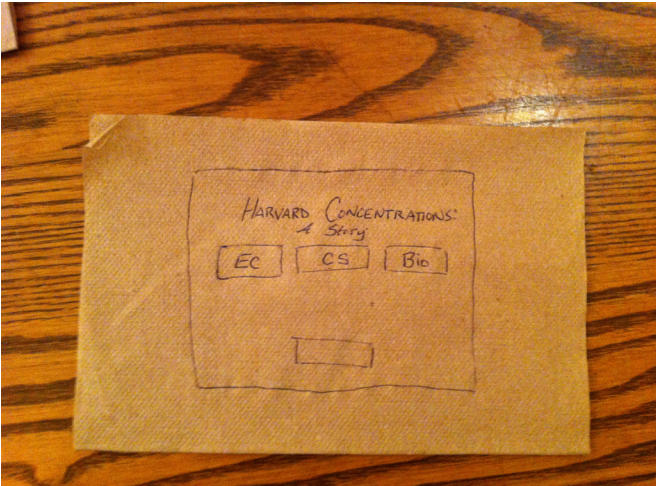 HARVARD CONCENTRATIONS:
A Story
EC CS Bio